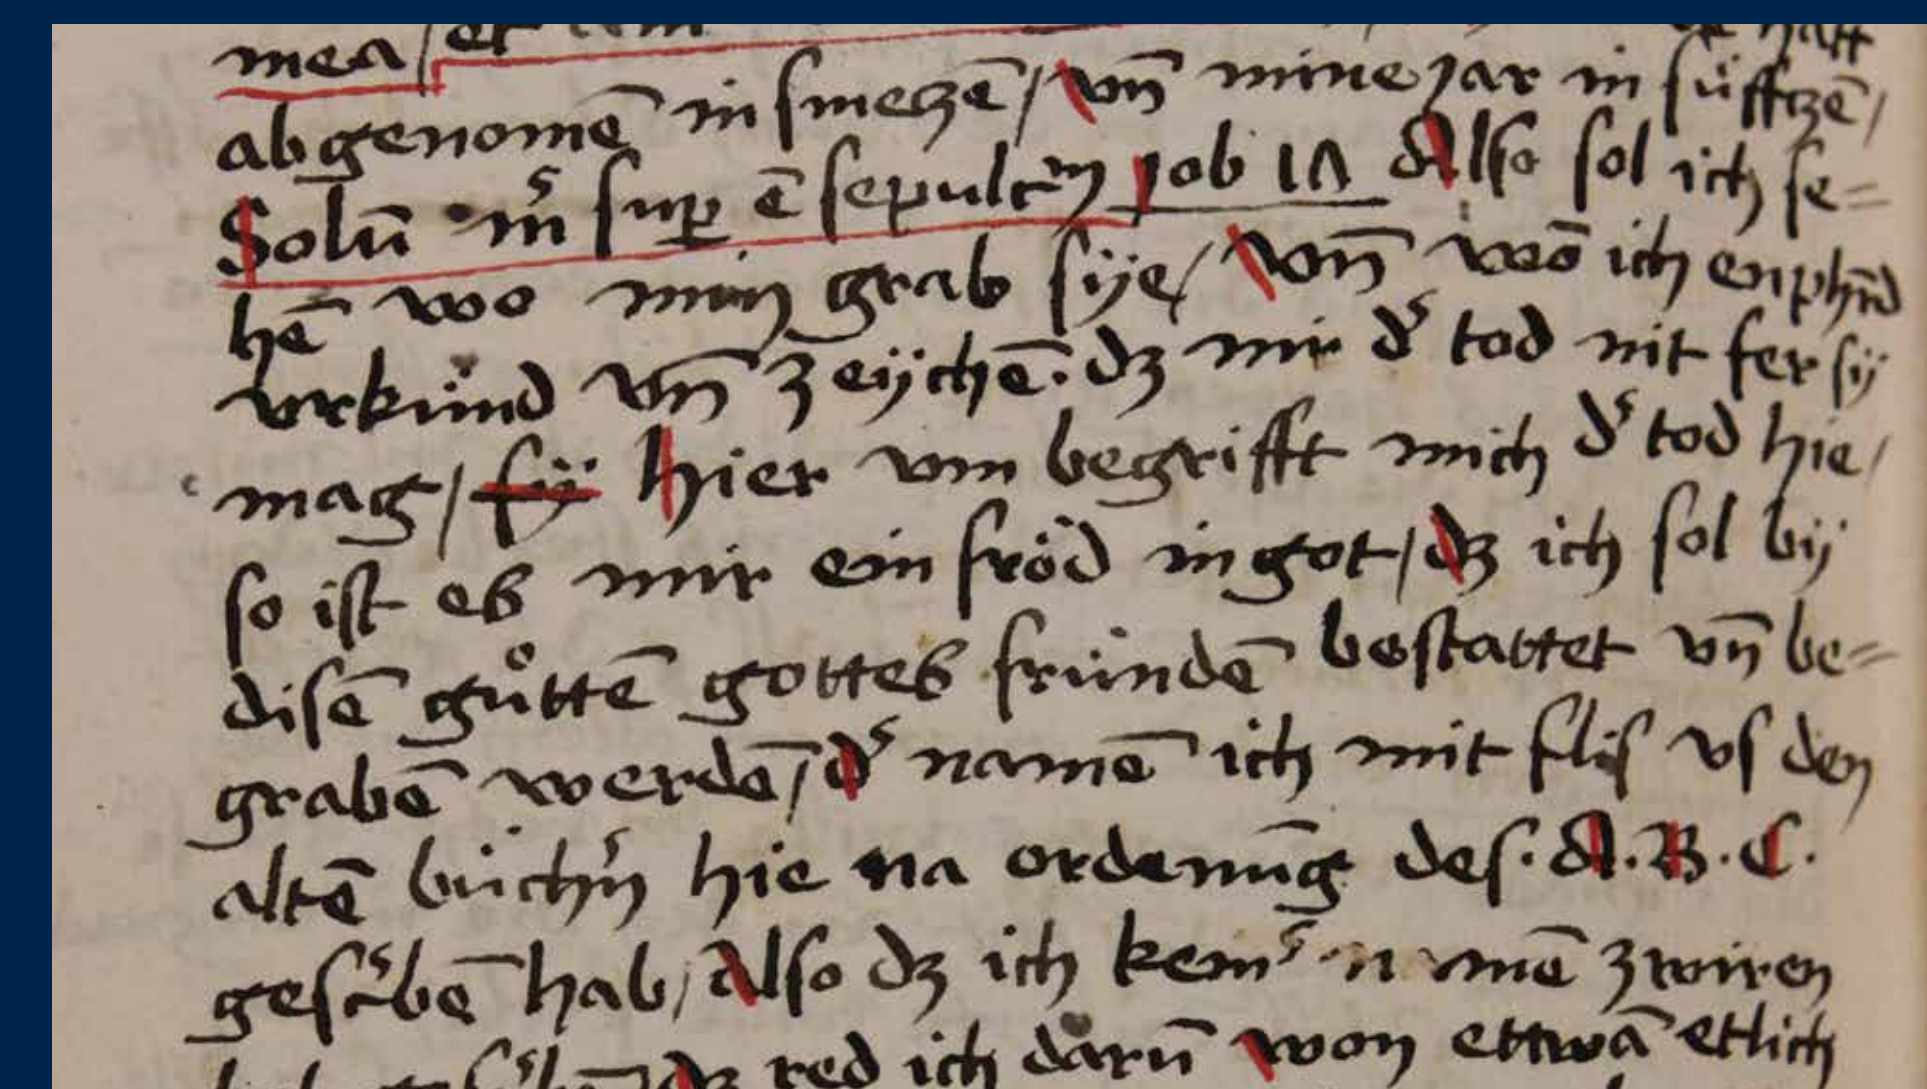 mea / et
abgenomē in smeczē / vn̄ mine jar in süfftzē /
Solū m̄ sup ē sepulcrm Job 17 Also sol ich se=
hē wo min grab sÿe / Von̄ wō ich enphind
vrkünd vn̄ zeÿchē. dz mir d' tod nit fer sÿ
mag / sÿ hier vm begrifft mich d' tod hie /
so ist es mir ein fröd in got / dz ich sol bÿ
disē gůttē gottes fründē bestattet vn̄ be=
grabē werdē / d' namē ich mit flis vs den
altē büch'n hie na ordenūg des. A. B. C.
gesc'bē hab / also dz ich kein' namē zwiren
dz red ich darū won ettwā etlich